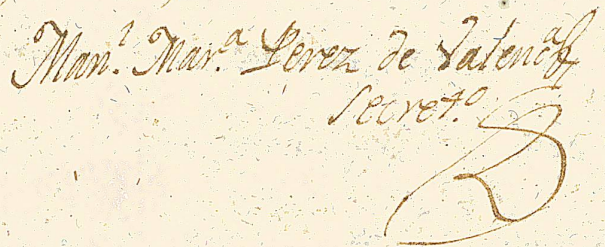 Man.l Mar.a Perez de Valenc.a
Secret.o